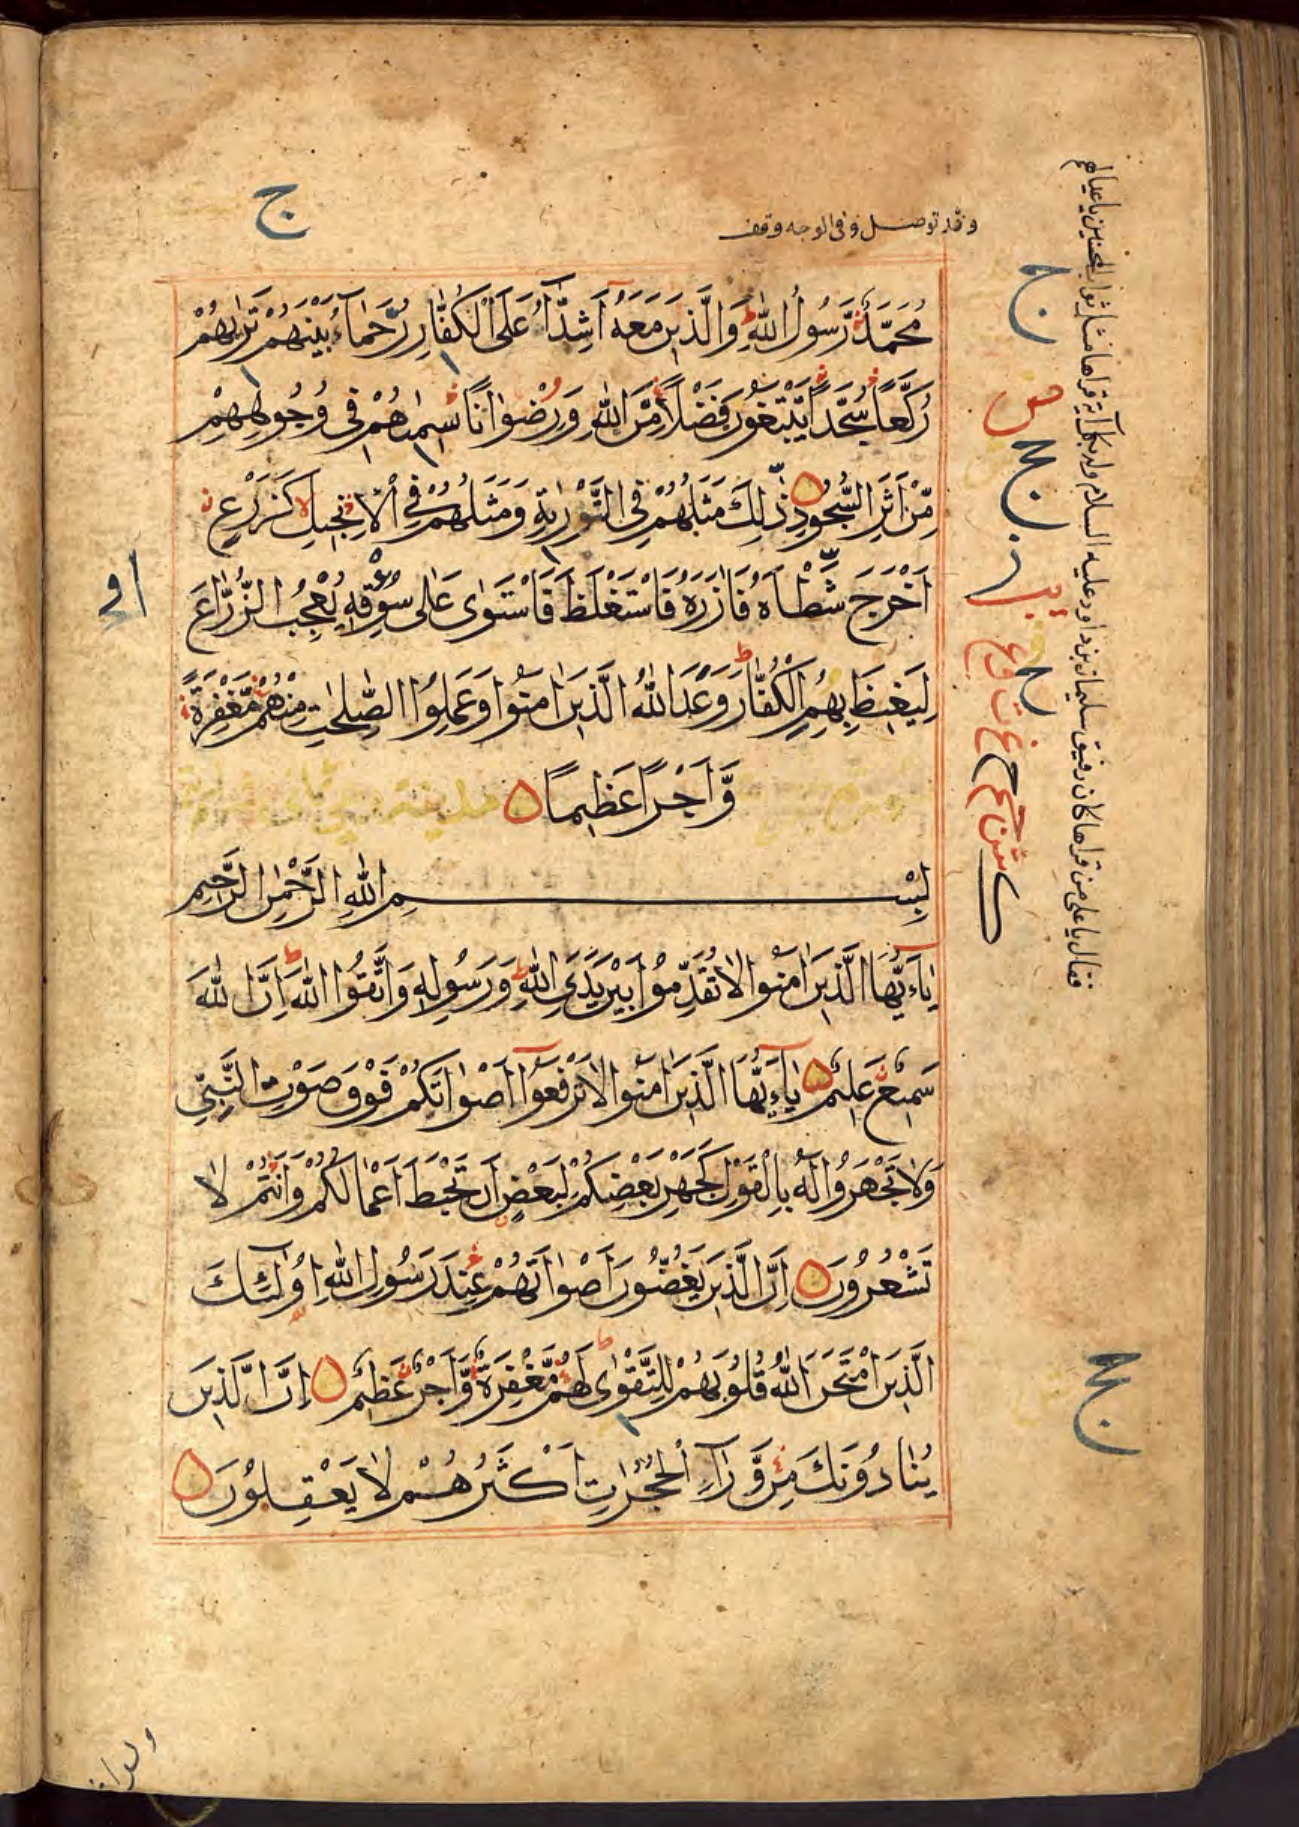 وقد توصل وفى الوجه وقف
ج
مُحَمَّدٌ رَّسُولُ اللّٰهِ وَالَّذِينَ مَعَهُ أَشِدَّآءُ عَلَى الْكُفَّارِ رُحَمَآءُ بَيْنَهُمْ تَرٰىهُمْ
رُكَّعًا سُجَّدًا يَّبْتَغُونَ فَضْلًا مِّنَ اللّٰهِ وَرِضْوَانًا سِيمٰاهُمْ فِى وُجُوهِهِمْ
مِّنْ أَثَرِ السُّجُودِ ذٰلِكَ مَثَلُهُمْ فِى التَّوْرٰيةِ وَمَثَلُهُمْ فِى الْاِنْجِيلِ كَزَرْعٍ
أَخْرَجَ شَطْأَهُ فَاٰزَرَهُ فَاسْتَغْلَظَ فَاسْتَوٰى عَلٰى سُوقِهِ يُعْجِبُ الزُّرَّاعَ
لِيَغِيظَ بِهِمُ الْكُفَّارَ وَعَدَ اللّٰهُ الَّذِينَ اٰمَنُوا وَعَمِلُوا الصّٰلِحٰتِ مِنْهُمْ مَّغْفِرَةً
وَّأَجْرًا عَظِيمًا
بِسْمِ اللّٰهِ الرَّحْمٰنِ الرَّحِيمِ
يٰاَيُّهَا الَّذِينَ اٰمَنُوا لَا تُقَدِّمُوا بَيْنَ يَدَىِ اللّٰهِ وَرَسُولِهِ وَاتَّقُوا اللّٰهَ اِنَّ اللّٰهَ
سَمِيعٌ عَلِيمٌ يٰاَيُّهَا الَّذِينَ اٰمَنُوا لَا تَرْفَعُوا أَصْوَاتَكُمْ فَوْقَ صَوْتِ النَّبِىِّ
وَلَا تَجْهَرُوا لَهُ بِالْقَوْلِ كَجَهْرِ بَعْضِكُمْ لِبَعْضٍ أَنْ تَحْبَطَ أَعْمَالُكُمْ وَأَنْتُمْ لَا
تَشْعُرُونَ اِنَّ الَّذِينَ يَغُضُّونَ أَصْوَاتَهُمْ عِنْدَ رَسُولِ اللّٰهِ اُولٰئِكَ
الَّذِينَ امْتَحَنَ اللّٰهُ قُلُوبَهُمْ لِلتَّقْوٰى لَهُمْ مَّغْفِرَةٌ وَّأَجْرٌ عَظِيمٌ اِنَّ الَّذِينَ
يُنَادُونَكَ مِنْ وَّرَآءِ الْحُجُرَاتِ أَكْثَرُهُمْ لَا يَعْقِلُونَ